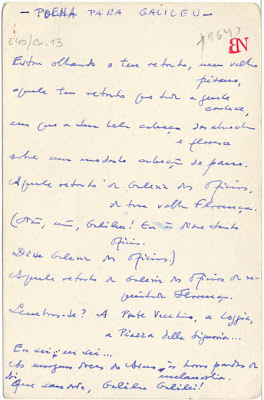 - POEMA PARA GALILEU -
E40/Cx. 13
[1964?]
BN
Estou olhando o teu retrato, meu velho
pisano,
aquele teu retrato que toda a gente
conhece,
em que a tua bela cabeça desabrocha
e floresce
sobre um modesto cabeção de pano.
Aquele retrato da Galeria dos Ofícios,
da tua velha Florença.
(Não, não, Galileu! Eu não disse Santo
Ofício.
Disse Galeria dos Ofícios.)
Aquele retrato da Galeria dos Ofícios da re-
quintada Florença.
Lembras-te? A Ponte Vecchio, a Loggia,
a Piazza della Signoria...
Eu sei, eu sei...
As margens doces do Arno às horas pardas da
melancolia.
Ai que saudade, Galileu Galilei!